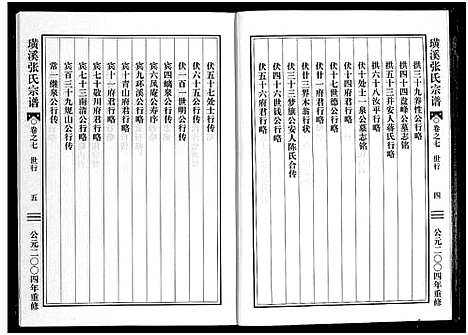 璜溪张氏宗谱 卷之七 世行 四 公元二〇〇四年重修
拱三十九养性公行略
拱四十四盘峰公墓志铭
拱五十三并安人蒋氏行略
拱六十八汝平行略
伏十处士一泉公墓志铭
伏廿一府君行略
伏廿三界木翁行状
伏三十三梦旗公安人陈氏合传
伏四十六世钱公行略
伏五十六府君行略
伏五十七处士行传
伏六十五公行传
伏一百一世明公行传
宾四续泉公行传
宾六凤庵公寿序
宾九环溪公行略
宾十青山府君行略
宾十一府君行略
宾七十敬川府君行略
宾七十三南清公行略
宾百三十九岘山公行传
常一继泉公行传
璜溪张氏宗谱 卷之七 世行 五 公元二〇〇四年重修